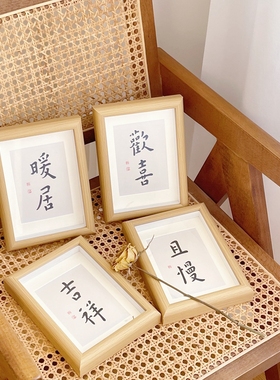 暖居
歡喜
吉祥
且慢